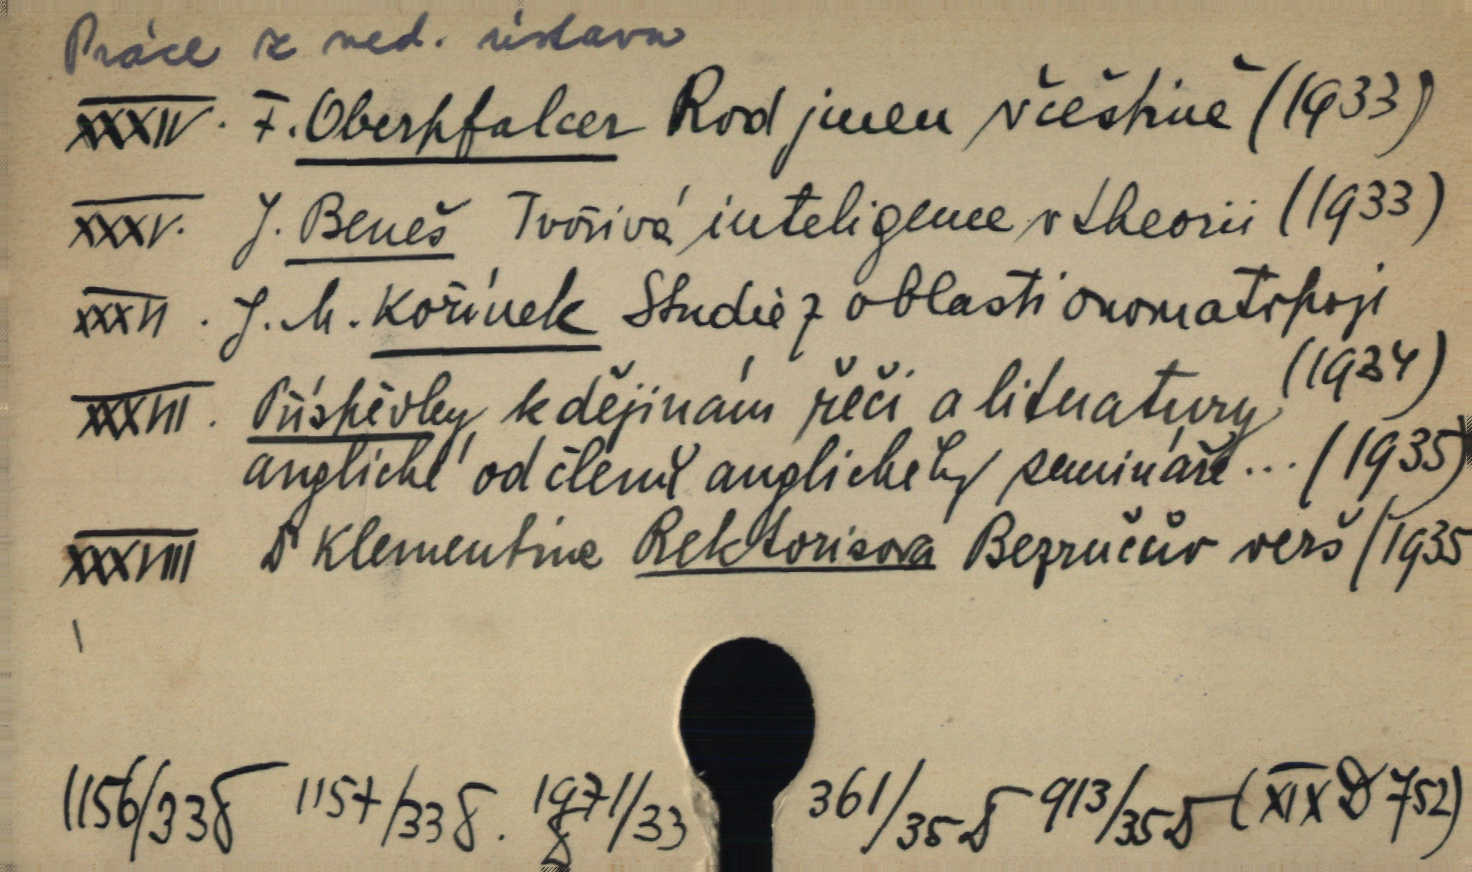 Práce z věd. ústavu
XXXIV. F. Oberpfalcer Rod jmen v češtině (1933)
XXXV. J. Beneš Tvořivá inteligence v theorii (1933)
XXXVI. J. M. Kořínek Studie z oblasti onomatopoje
(1934)
XXXVII. Příspěvky k dějinám řeči a literatury
anglické od členů anglického semináře... (1935)
XXXVIII Dr Klementina Rektorisová Bezručův verš (1935
(1156/33 1157/33 1971/33 361/35 913/35 (XIX D 752)